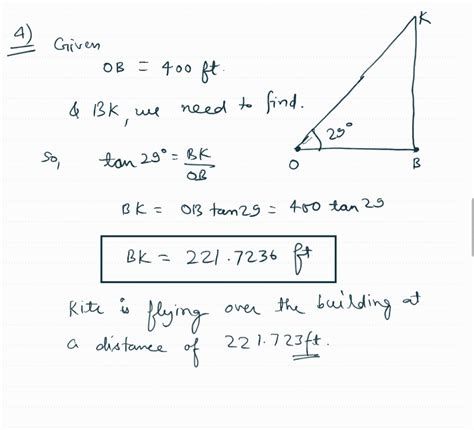 4) Given
OB = 400 ft.
& BK, we need to find.
So, tan 29° = BK
OB
BK = OB tan29 = 400 tan 29
BK = 221.7236 ft
Kite is flying over the building at
a distance of 221.723ft.
K
29°
O
B